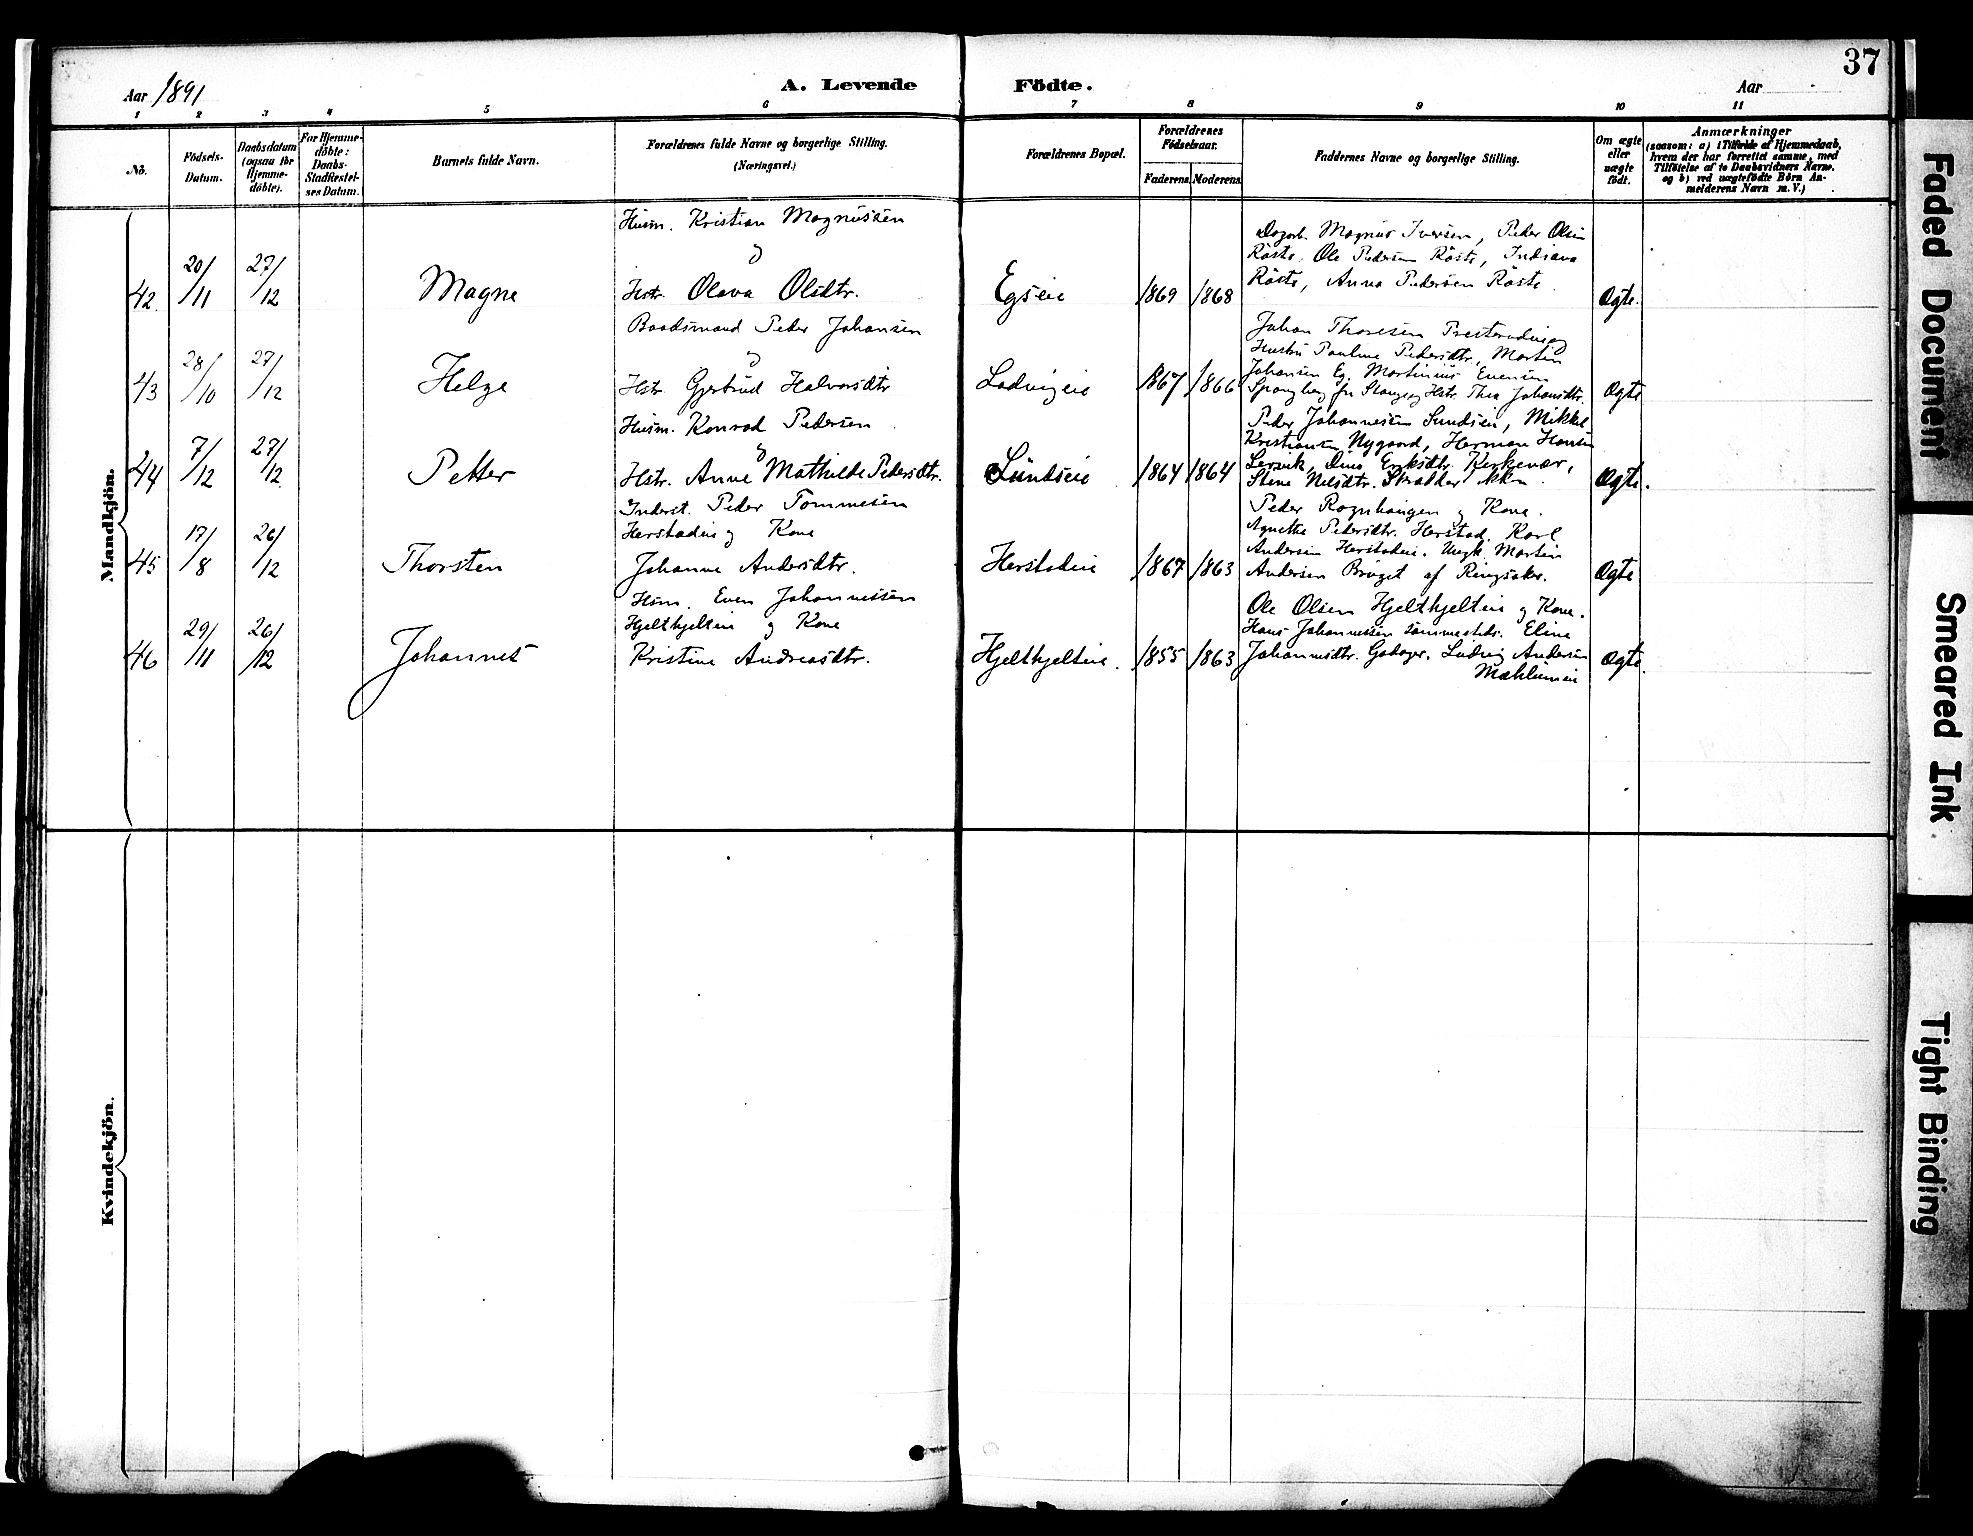 37
Aar 1891
A. Levende Födte.
Aar
1 2 3 4 5 6 7 8 9 10 11
No.
Födsels-Datum.
Daabsdatum (ogsaa for Hjemme-döbte).
For Hjemme-döbte: Daabs-Stadfæstel-ses Datum.
Barnets fulde Navn.
Forældrenes fulde Navne og borgerlige Stilling. (Næringsvei.)
Forældrenes Bopæl.
Forældrenes Födselsaar.
Faderens Moderens
Faddernes Navne og borgerlige Stilling.
Om ægte eller uægte födt.
Anmærkninger
(saasom: a) i Tilfælde af Hjemmedaab,
hvem der har forrettet samme, med
Tilföielse af to Daabsvidners Navne,
og b) ved uægtefödte Börn An-
melderens Navn m. V.)
Mandkjön.
Husm. Kristian Magnussen
og
42. 20/11 27/12 Magne Hstr. Olava Olsdtr. Egseie 1869 1868
Dagarb. Magnus Iversen, Peder Olsen
Röste, Ole Pedersen Röste, Indiana
Röste, Anna Pedersen Röste.
Ægte.
Baadsmand Peder Johansen
og
43 28/10 27/12 Helge Hstr. Gjertrud Halvorsdtr Ladvigeie 1867 1866
Johan Thoresen Presterudeie og
Hustru Pauline Pedersdtr, Martin
Johansen Eg. Martinius Evensen
Spangberg fra Stange og Hstr. Thea Johansdtr.
Ægte
Husm. Konrad Pedersen
og
44 7/12 27/12 Petter Hstr. Anne Mathilde Pedersdtr. Sundseie 1864 1864
Peder Johannesen Sundseie, Mikkel
Kristiansen Nygaard, Herman Hansen
Lervik, Dina Eriksdtr. Kirkenær,
Stine Nilsdtr.
Ægte.
Inderst. Peder Tommesen
Herstadeie og Kone
45 17/8 26/12 Thorsten Johanne Andersdtr. Herstadeie 1867 1863
Peder Rognhaugen og Kone.
Agnethe Pedersdtr. Herstad. Karl
Andersen Herstadeie. Ungk. Martin
Andersen Bröget af Ringsaker.
Ægte
Husm. Even Johannessen
Hjelthjelteie og Kone
46 29/11 26/12 Johannes Kristine Andreasdtr. Hjelthjelteie. 1855 1863
Ole Olsen Hjelthjelteie og Kone.
Hans Johannessen sammesteds. Eline
Johannesdtr. Godager. Ludvig Andersen
Mæhlumeie
Ægte.
Kvindekjön.
Faded Document
Smeared Ink
Tight Binding